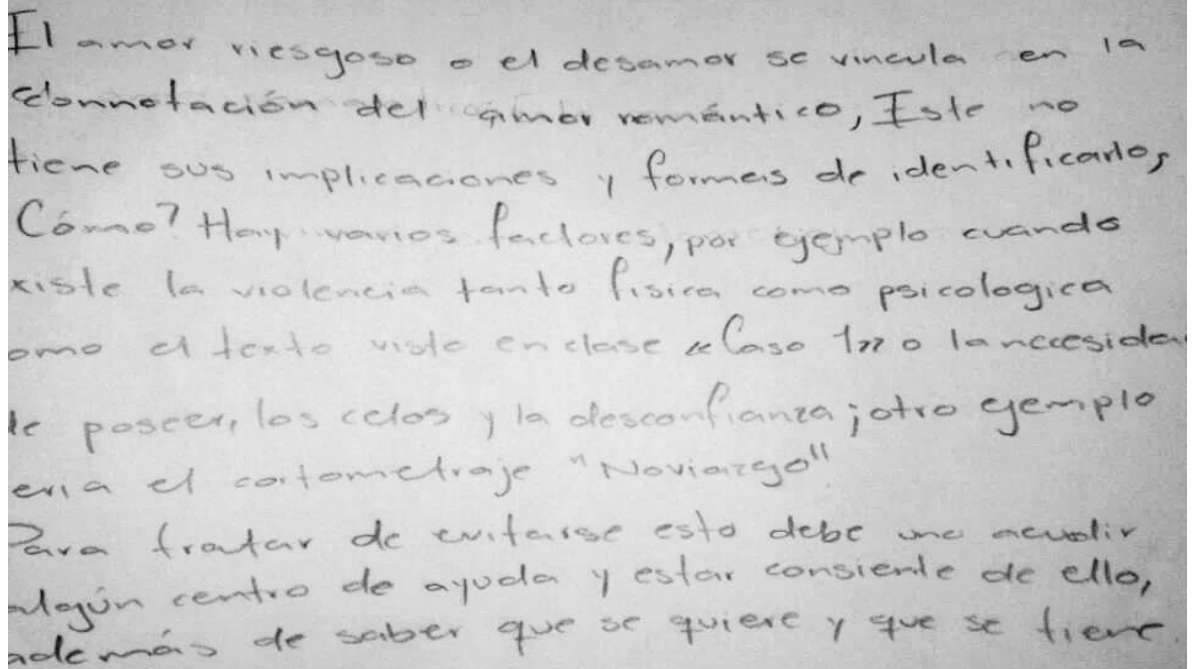 El amor riesgoso o el desamor se vincula en la
connotación del amor romántico, Este no
tiene sus implicaciones y formas de identificarlo,
Cómo? Hay varios factores, por ejemplo cuando
xiste la violencia tanto fisica como psicologica
omo el texto visto en clase "Caso 1" o la necesida
de poseer, los celos y la desconfianza; otro ejemplo
eria el cortometraje "Noviazgo"
Para tratar de evitarse esto debe uno acudir
algún centro de ayuda y estar consiente de ello,
además de saber que se quiere y que se tiene.